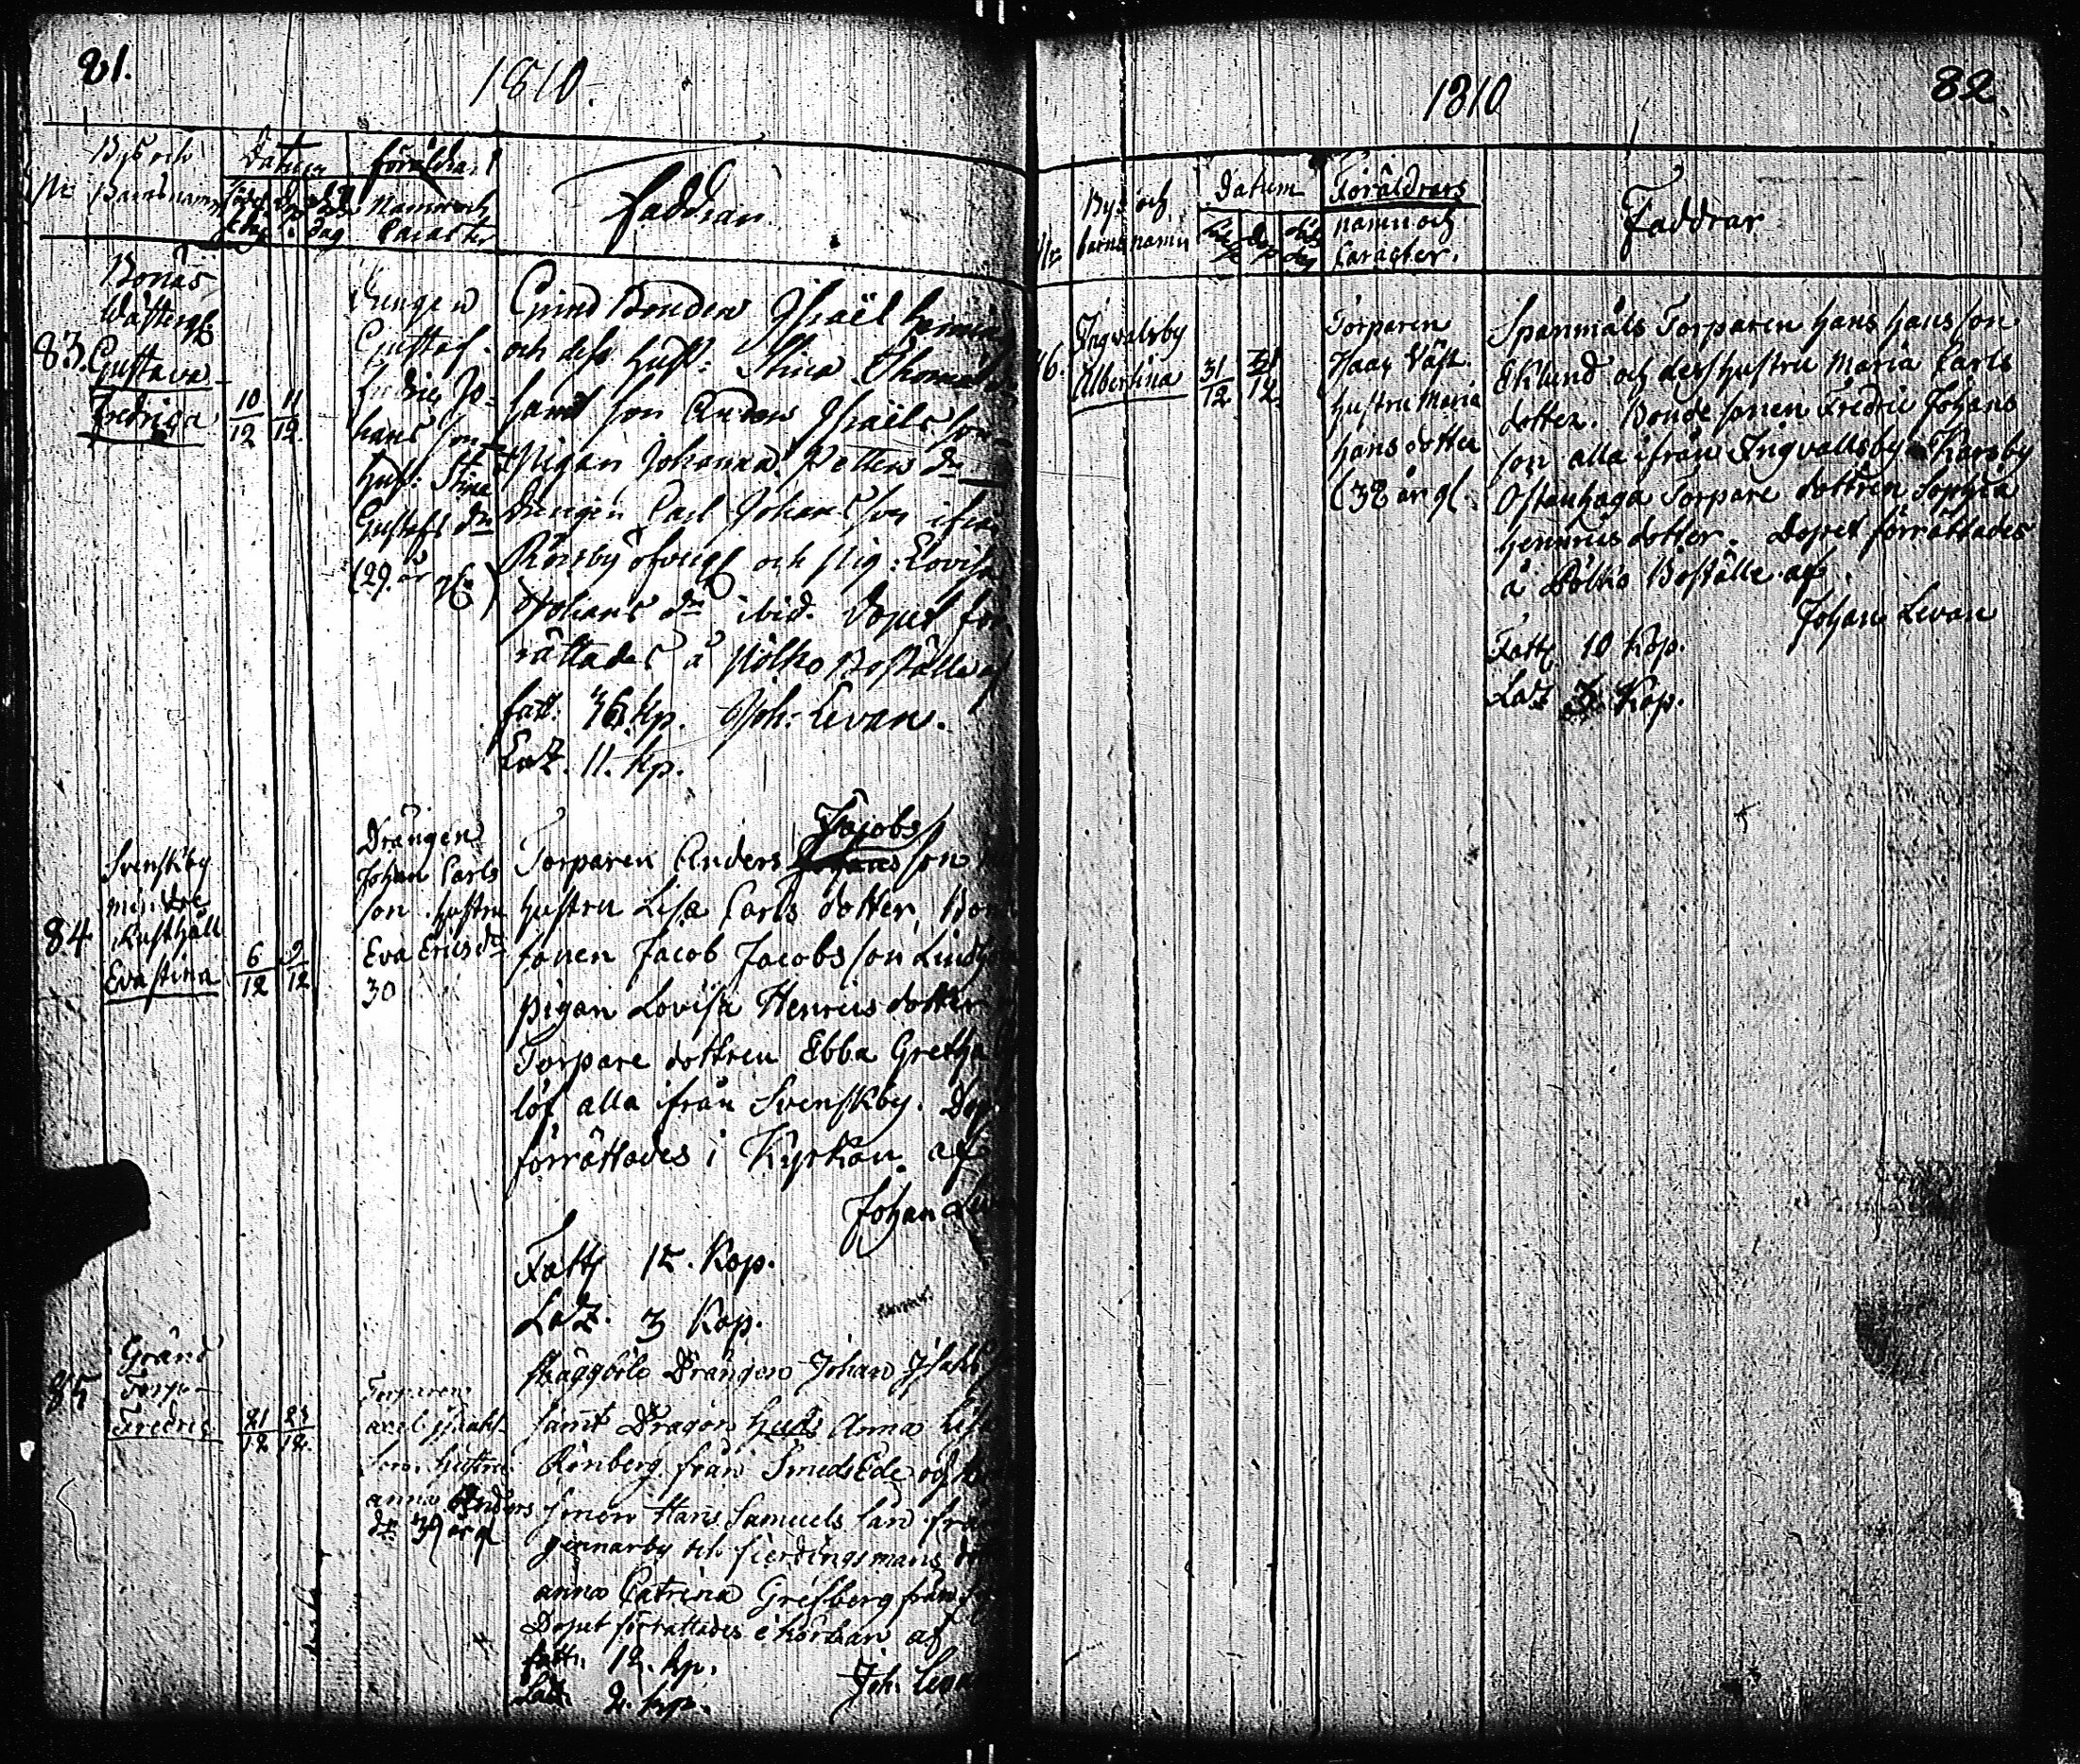 81.
1810.
No
Bys och
Barnsnamn
Datum
Föräldrars
Namn och
Caracter
Faddrar.
83.
Bonäs
Wästergd
Gustava
Fredriga
10/12
11/12
Drängen
Gustaf
Fredric Jo=
hans son
Hust: Stina
Gustafs dr
(29. år gl:)
Grind Bonden Israël
och dess Hust: Stina Thomas
samt son Anders Israëls son
Pigan Johanna Petters dr
Drängen Carl Johans son ifrån
Rönsby öfvergd och pig: Lovisa
Johans dr ibid. Dopet för=
rättades å Pölko Boställe af
fatt: 36. kp. Joh: Levan.
Laz. 11. kp.
84
Svenskby
mindre
Rusthåll
Eva Stina
6/12
9/12
Drängen
Johan Carls
son. Hustru
Eva Erics dr
30
Jacobs
Torparen Anders son
hustru Lisa Carls dotter, Bon
sonen Jacob Jacobs son
pigan Lovisa Henrics dotter
Torpare dottren Ebba Gretha
löf alla ifrån Svenskby. Dop
förrättades i Kyrkan af
Johan Lev
Fatt 12. Kop.
Laz. 3 Kop.
85
Gränd
Torp
Fredric
21/12
23/12
Torparen
axel Isaks
son. hustru
anna Anders
dr 39 år gl
Skäggböle Drängen Johan Isaks
samt Dragon Hust Anna Lis
Rönberg från Smeds Ede och
Simon Hans Samuels son från
till fierdingsmans
anna Catrina Grefberg från
Dopet förrattades i körkan af
fatt. 12. kp.
Joh. Levan
Laz. 2. kop.
1810
82.
No
Bys och
barns namn
Datum
Föräldrars
namn och
Caracter.
Faddrar
86.
Ingvalsby
Albertina
31/12
31/12
Torparen
Haar Väst.
hustru Maria
Hans dotter
(32 år gl.
Spanmäls Torparen Hans Hans son
Eklund och dess hustru Maria Carls
dotter. Bonde sonen Fredric Johans
son alla ifrån Ingvallsby Karsby
Ostanhaga Torpare dottren Sophia
Henrics dotter. Dopet förrättades
å Pölko Boställe af
Johan Levan
Fatt 10 Kop.
Laz 3 Kop.